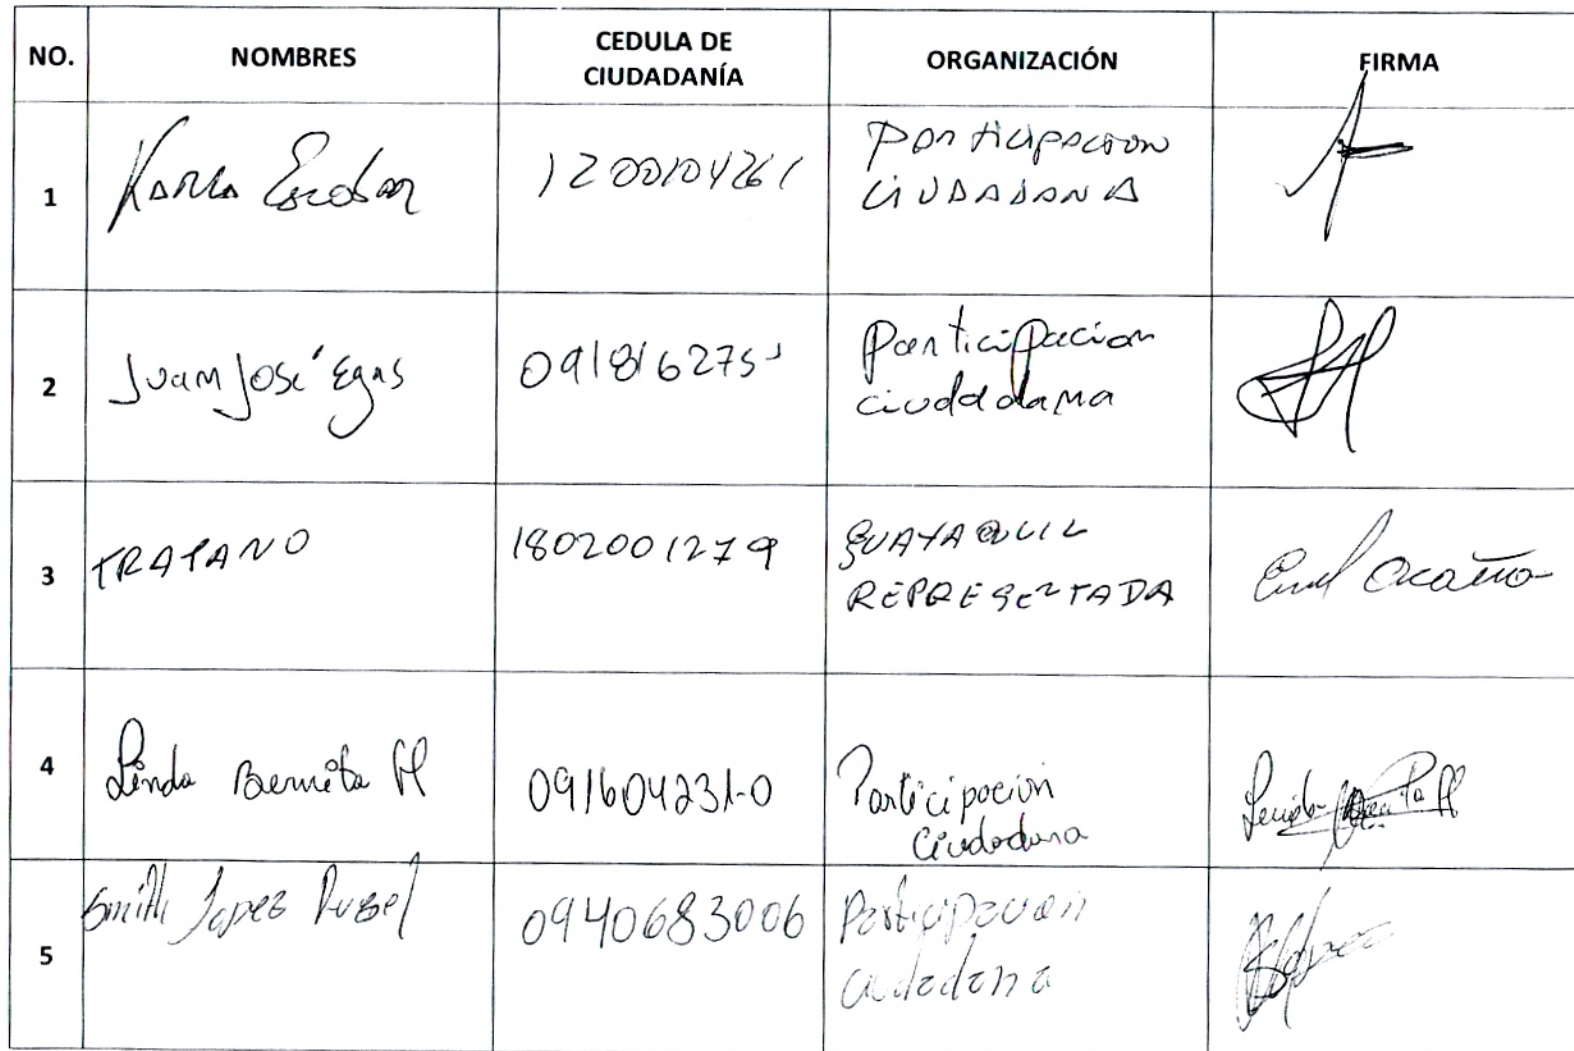 NO. NOMBRES CEDULA DE CIUDADANÍA ORGANIZACIÓN FIRMA
1 Karla Escobar 1200104261 Participacion
CIUDADANA
2 Juan José Egas 091816275 Participacion
ciudadana
3 TRAPANO 1802001279 GUAYAQUIL
REPRESENTADA Ocaña
4 Linda Bermita 091604231-0 Participación
Ciudadana
5 Smith Lopez 0940683006 Participacion
ciudadana